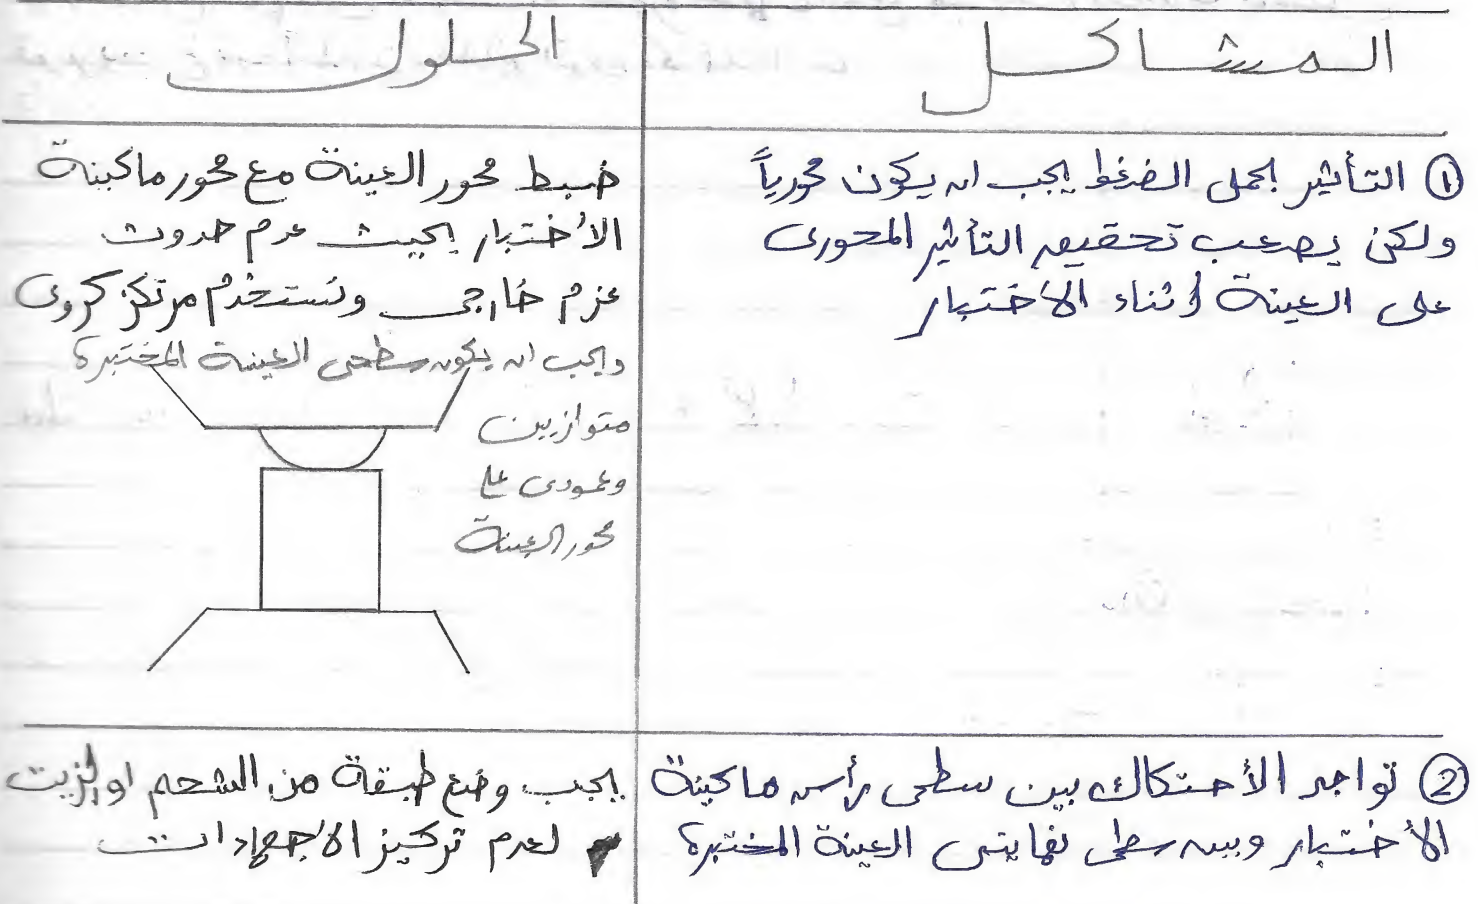 المشاكل
الحلول
① التأثير بحمل الضغط يجب ان يكون محورياً
ولكن يصعب تحقيق التأثير المحورى
على العينة أثناء الأختبار
ضبط محور العينة مع محور ماكينة
الأختبار بحيث عدم حدوث
عزم خارجى ونستخدم مرتكز كروى
ويجب ان يكون سطحى العينة المختبرة
متوازيين
وعمودى على
محور العينة
② تواجد الأحتكاك بين سطحى رأس ماكينة
الأختبار وبين سطحى نهايتى العينة المختبرة
يجب وضع طبقة من الشحم او الزيت
لعدم تركيز الأجهادات